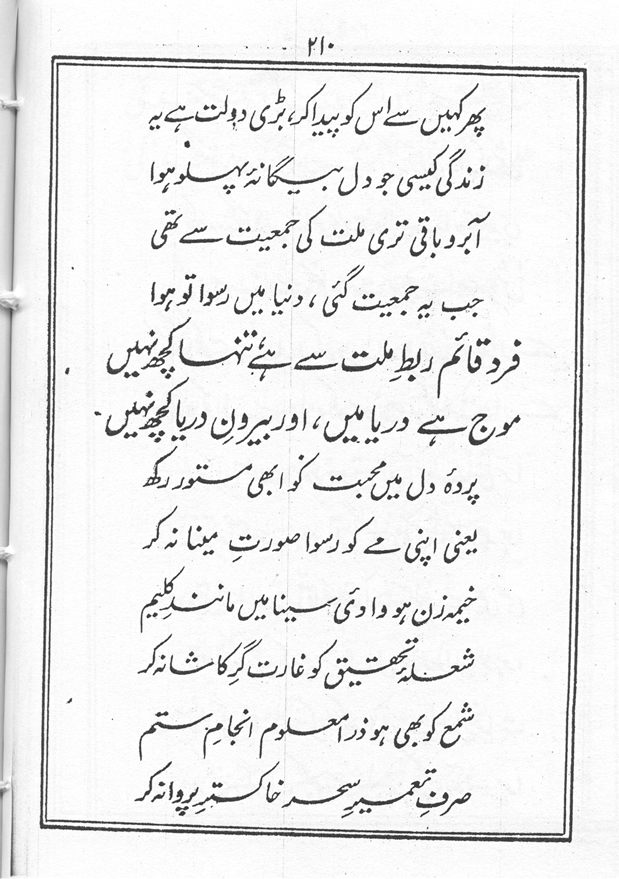 ۲۱۰
پھر کہیں سے اس کو پیدا کر، بڑی دولت ہے یہ
زندگی کیسی جو دل بیگانۂ پہلو ہوا
آبرو باقی تری ملت کی جمعیت سے تھی
جب یہ جمعیت گئی، دنیا میں رسوا تو ہوا
فرد قائم ربطِ ملت سے ہے تنہا کچھ نہیں
موج ہے دریا میں، اور بیرونِ دریا کچھ نہیں
پردۂ دل میں محبت کو ابھی مستور رکھ
یعنی اپنی مے کو رسوا صورتِ مینا نہ کر
خیمہ زن ہو وادئ سینا میں مانندِ کلیم
شعلۂ تحقیق کو غارت گرِ کاشانہ کر
شمع کو بھی ہو ذرا معلوم انجامِ ستم
صرفِ تعمیرِ سحر خاکسترِ پروانہ کر